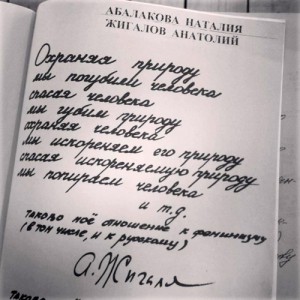 АБАЛАКОВА НАТАЛИЯ
ЖИГАЛОВ АНАТОЛИЙ
Охраняя природу
мы погубили человека
спасая человека
мы губим природу
охраняя человека
мы искореняем его природу
спасая искореняемую природу
мы попираем человека
и т.д.
таково моё отношение к феминизму
(в том числе, и к русскому)
А. Жигал